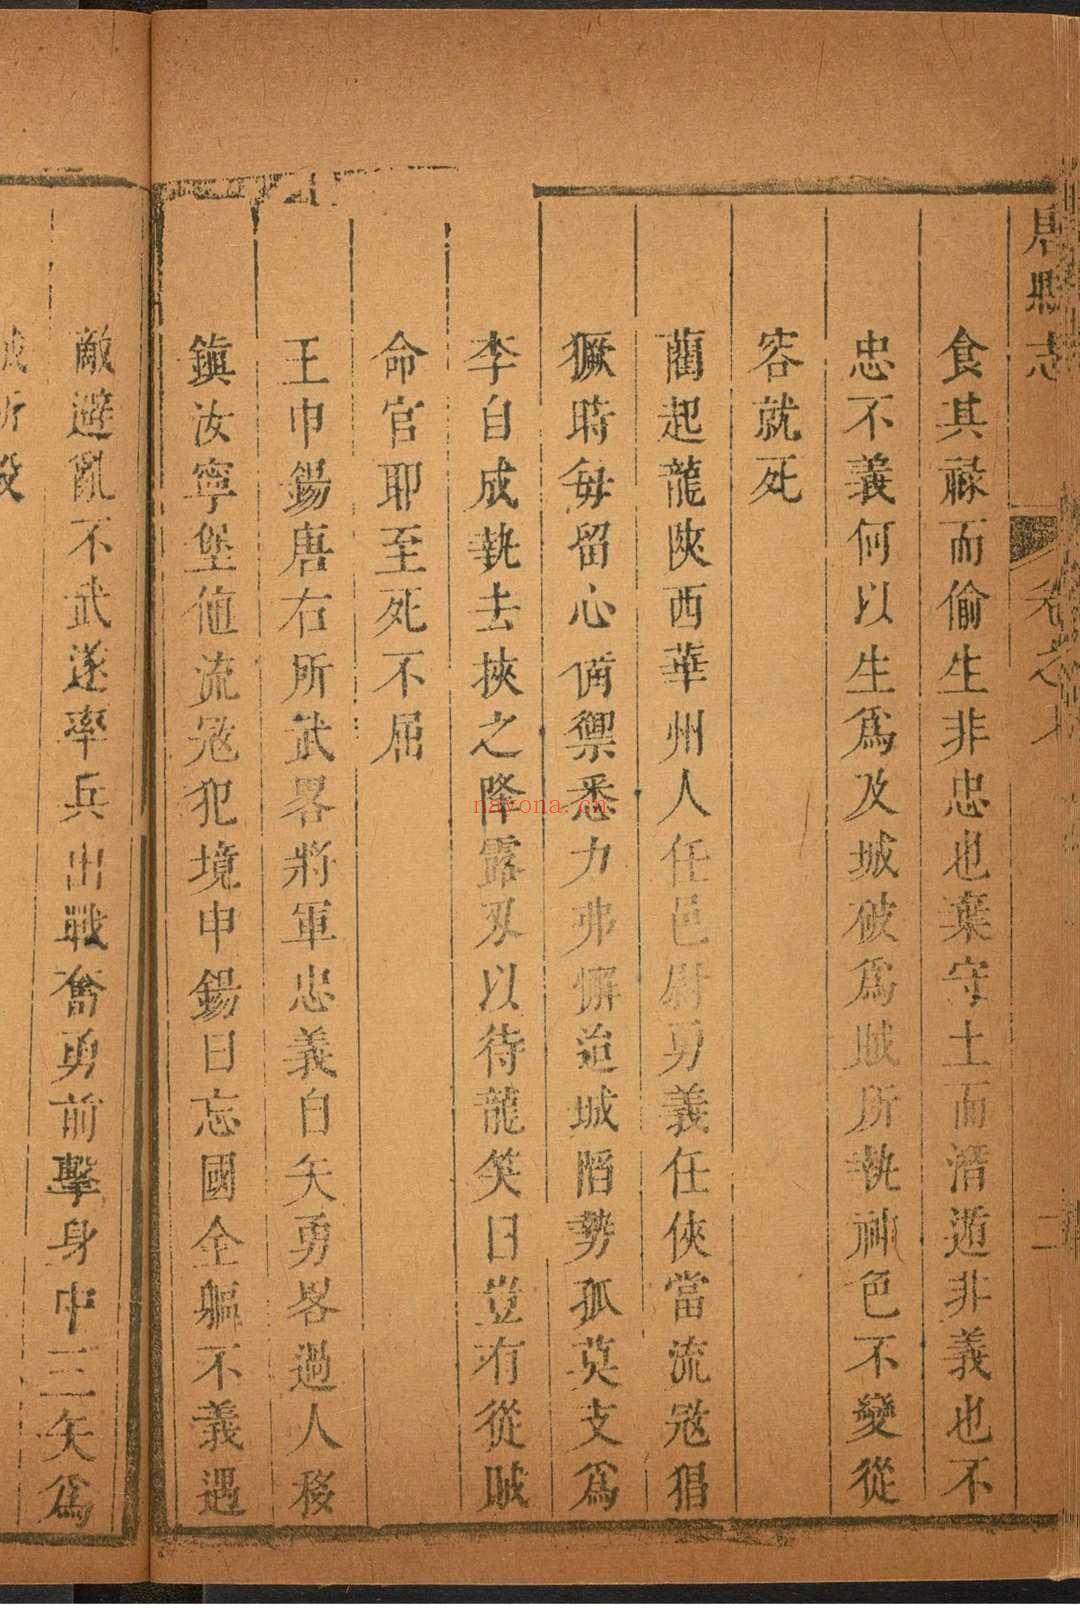 唐縣志
卷之
二
食其祿而偷生非忠也棄守土而潛遁非義也不
忠不義何以生爲及城破爲賊所執神色不變從
容就死
藺起龍陝西華州人任邑尉勇義任俠當流寇猖
獗時每留心俻禦悉力弗懈迨城陷勢孤莫支爲
李自成執去挾之降露刃以待龍笑曰豈有從賊
命官耶至死不屈
王巾錫唐右所武畧將軍忠義自矢勇畧過人移
鎮汝寧堡值流寇犯境申錫曰忘國全軀不義遇
敵避亂不武遂率兵出戰奮勇前擊身中三矢爲
nayona.cn